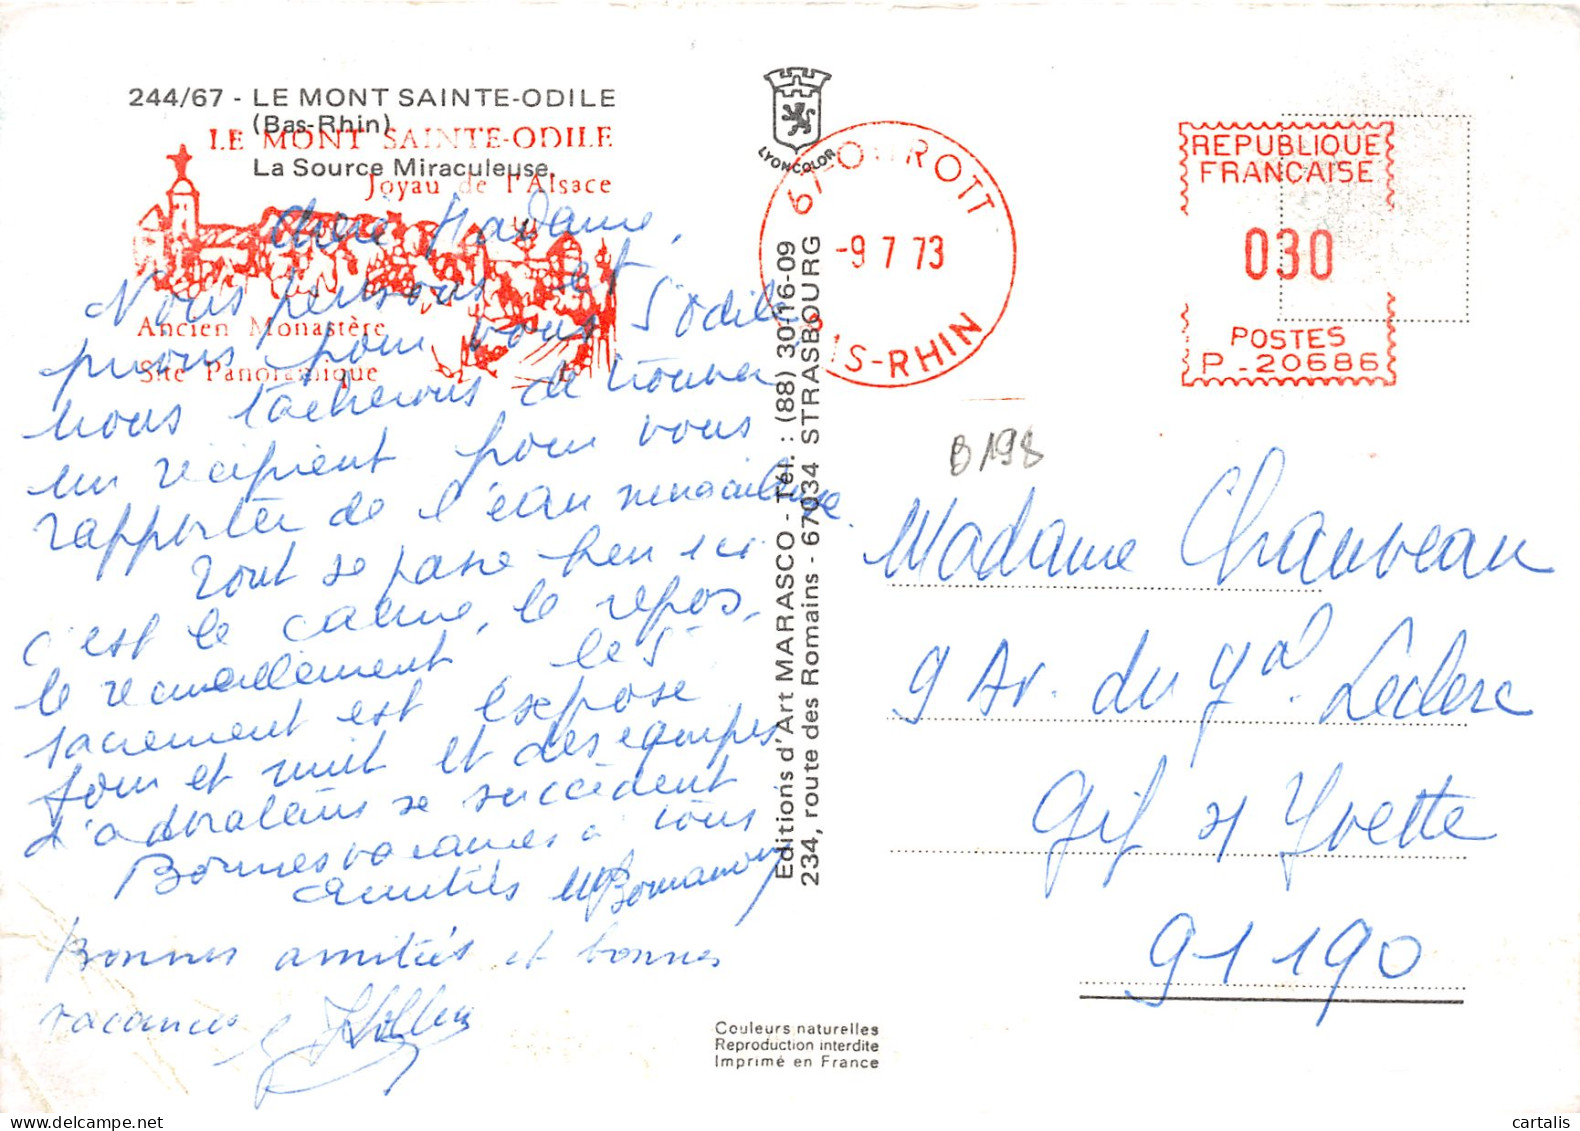 244/67 - LE MONT SAINTE-ODILE
(Bas-Rhin)
La Source Miraculeuse.
LE MONT SAINTE-ODILE
Joyau de l'Alsace
Ancien Monastère
Site Panoramique
Chère Madame,
Nous pensons et
prions pour vous Ste Odile
nous tâcherons de trouver
un récipient pour vous
rapporter de l'eau miraculeuse.
Tout se passe bien ici
c'est le calme, le repos,
le recueillement le St
sacrement est exposé
jour et nuit et des équipes
d'adorateurs se succèdent
Bonnes vacances à tous
amitiés
Bonnes amitiés et bonnes
vacances
LYONCOLOR
Editions d'Art MARASCO - Tél. : (88) 30-16-09
234, route des Romains - 67034 STRASBOURG
Couleurs naturelles
Reproduction interdite
Imprimé en France
67 OTTROTT
-9 7 73
BAS-RHIN
REPUBLIQUE
FRANCAISE
030
POSTES
P_20686
B198
Madame Chauveau
9 Av. du Gal. Leclerc
Gif s/ Yvette
91190
cartalis